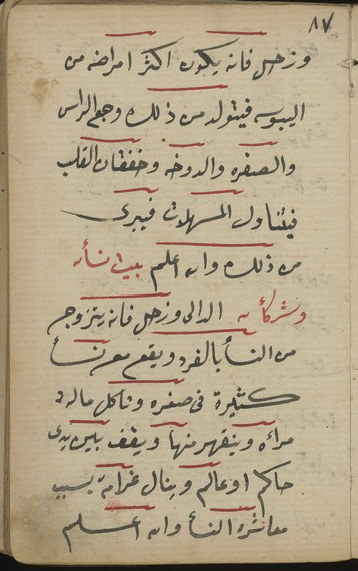 ٨٧
وزحل فانه يكون اكثر امراضه من
اليبوسه فيتولد من ذلك وجع الراس
والصفره والدوخه وخفقان القلب
فيتناول المسهلات فيبرى
من ذلك والله اعلم بيت نسائه
وشركائه الدالى وزحل فانه يتزوج
من النسا بالفرد ويقع مع نسا
كثيرة فى صغره وتاكل ماله
مراه وينقهر منها ويقف بين يدى
حاكم او عالم وينال غرامة بسبب
معاشرة النسا والله اعلم